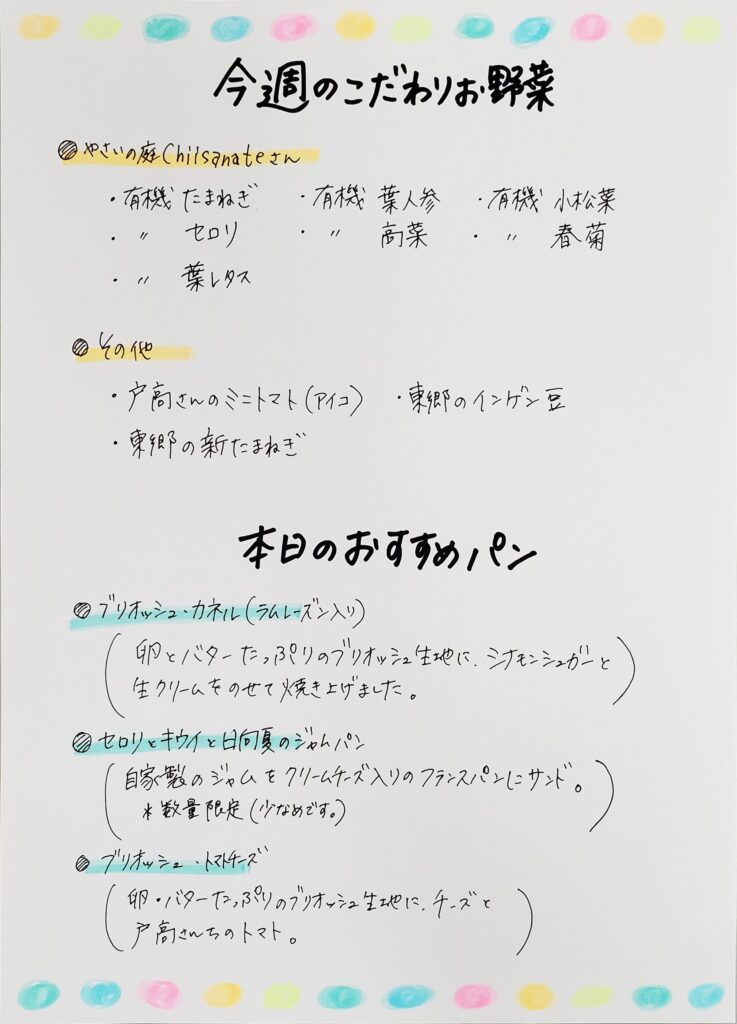 今週のこだわりお野菜
やさいの庭Chiisanateさん
・有機 たまねぎ ・有機 葉人参 ・有機 小松菜
・〃 セロリ ・〃 高菜 ・〃 春菊
・〃 葉レタス
その他
・戸高さんのミニトマト(アイコ) ・東郷のインゲン豆
・東郷の新たまねぎ
本日のおすすめパン
ブリオッシュ・カネル(ラムレーズン入り)
(卵とバターたっぷりのブリオッシュ生地に、シナモンシュガーと
生クリームをのせて焼き上げました。)
セロリとキウイと日向夏のジャムパン
(自家製のジャムをクリームチーズ入りのフランスパンにサンド。
*数量限定(少なめです。))
ブリオッシュ・トマトチーズ
(卵・バターたっぷりのブリオッシュ生地に、チーズと
戸高さんちのトマト。)